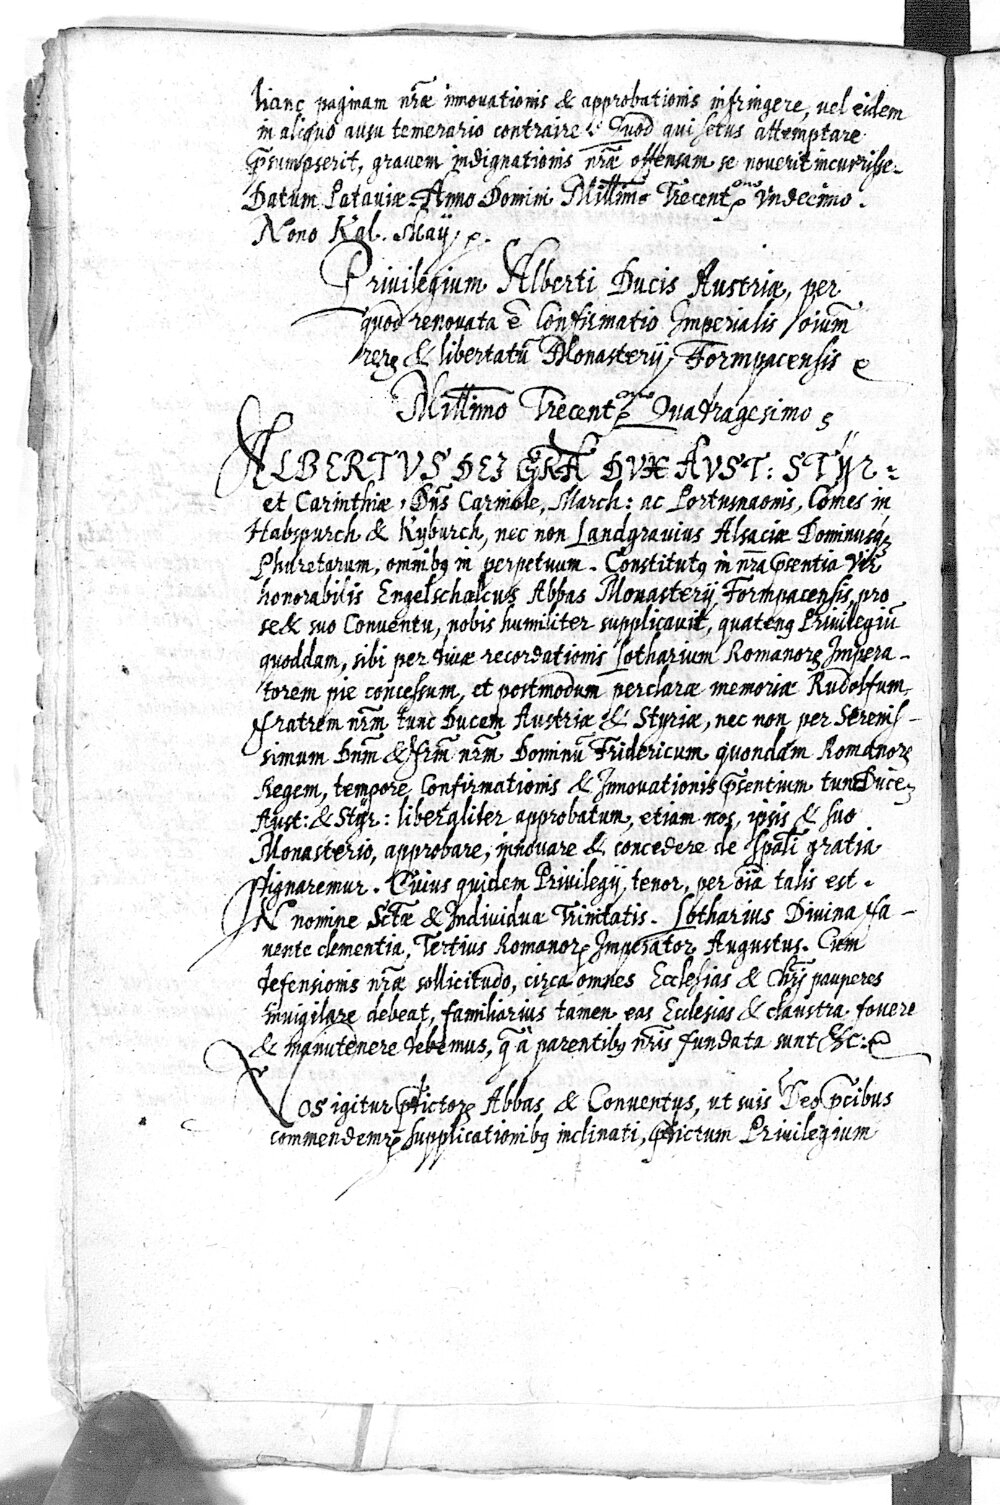 hanc paginam nr̃æ innovationis & approbationis infringere, vel eidem
in aliquo ausu temerario contraire. Quod qui secus attemptare
p̃sumpserit, gravem indignationis nr̃æ offensam se noverit incurrisse.
Datum Pataviæ. Anno Domini Millimo Trecent. Undecimo.
Nono Kal. Maij.
Privilegium Alberti Ducis Austriæ, per
quod renovata ẽ Confirmatio Imperialis oium̃
rerꝝ & libertatũ Monasterij Formpacensis
Millimo Trecent. Quadragesimo
ALBERTUS DEI GRÃ DUX AUST: STYR:
et Carinthiæ, Dñs Carniole, March: ac Portusnaonis, Comes in
Habspurch & Kyburch, nec non Landgravius Alsaciæ Dominusq;
Phyretarum, omnibꝯ in perpetuum. Constitutꝯ in nr̃a p̃sentia Vir
honorabilis Engelschalcus Abbas Monasterij Formpacensis, pro
se & suo Conventu, nobis humiliter supplicavit, quatenꝯ Privilegiũ
quoddam, sibi per divæ recordationis Lotharium Romanorꝝ Impera-
torem pie concessum, et postmodum perclaræ memoriæ Rudolfum,
fratrem nr̃m tunc Ducem Austriæ & Styriæ, nec non per Serenis-
simum Dñm & fr̃m nr̃m Dominũ Fridericum quondam Romanorꝝ
Regem, tempore Confirmationis & Innovationis p̃sentium tunc Ducẽ
Aust: & Styr: liberaliter approbatum, etiam nos, ipsis & suo
Monasterio, approbare, innovare & concedere de sp̃ali gratia
dignaremur. Cuius quidem Privilegij, tenor, per oĩa talis est.
IN nomine Sctæ & Individuæ Trinitatis. Lotharius Divina fa-
vente clementia, Tertius Romanorꝝ Imperator Augustus. Cum
defensionis nr̃æ sollicitudo, circa omnes Ecclesias & Chr̃i pauperes
invigilare debeat, familiarius tamen eas Ecclesias & claustra fovere
& manutenere debemus, q̃ ã parentibꝯ nr̃is fundata sunt &c:
NOS igitur p̃dictorꝝ Abbas & Conventus, ut suis Deo p̃cibus
commendemꝝ supplicationibꝯ inclinati, p̃dictum Privilegium